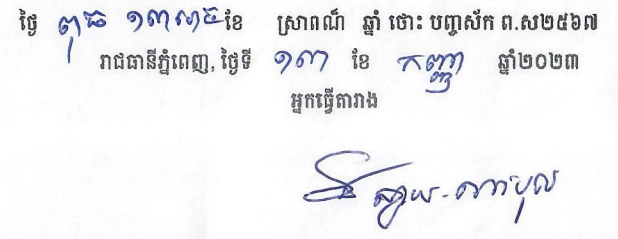 ថ្ងៃ ពុធ ១៣រោច ខែ ស្រាពណ៍ ឆ្នាំ ថោះ បញ្ចស័ក ព.ស២៥៦៧
រាជធានីភ្នំពេញ, ថ្ងៃទី ១៣ ខែ កញ្ញា ឆ្នាំ២០២៣
អ្នកធ្វើតារាង
ស្វាយ-